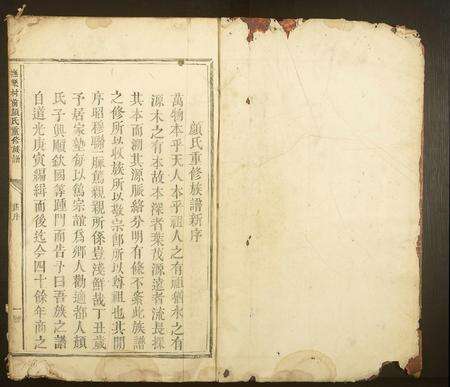 顏氏重修族譜新序
萬物本乎天人本乎祖人之有祖猶水之有
源木之有本故本深者葉茂源遠者流長探
其本而溯其源脈絡分明有條不紊此族譜
之修所以收族所以敬宗卽所以尊祖也其開
序昭穆聯一脈篤親親所係豈淺鮮哉丁丑歲
予居家塾每以篤宗誼爲鄉人勸適都人顏
氏子興順欽國等踵門而告予曰吾族之譜
自道光庚寅編緝而後迄今四十餘年商之
村前顏氏重修族譜
序
一